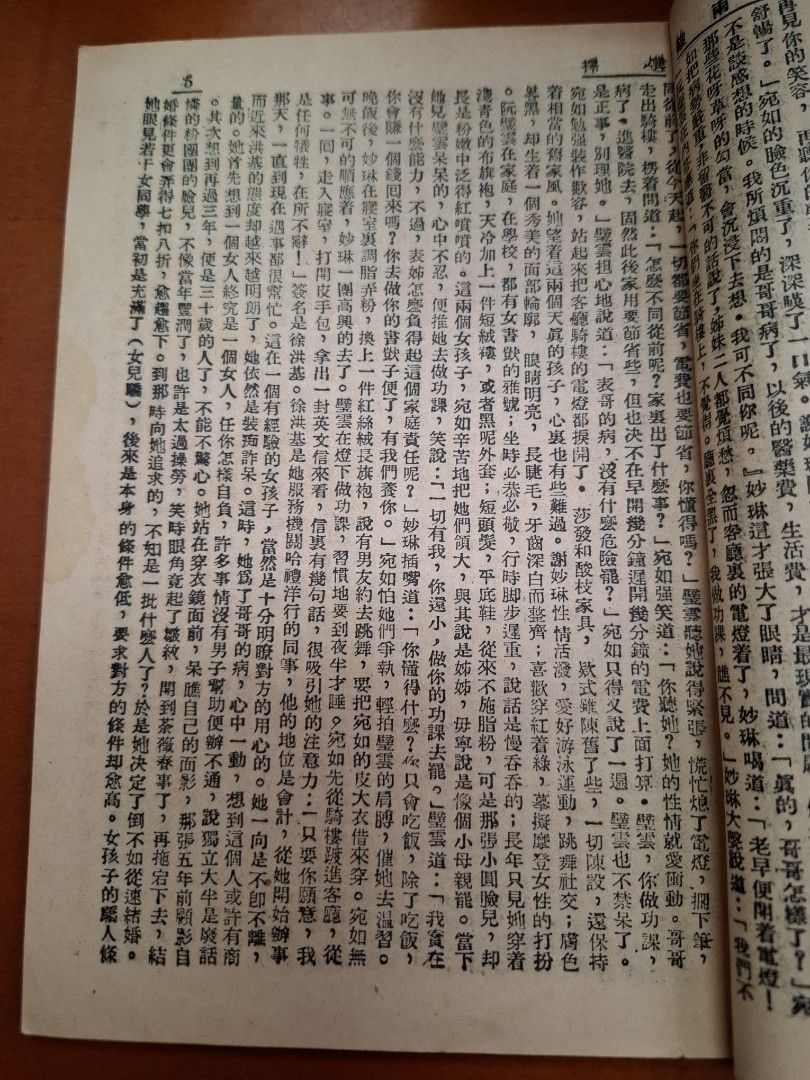 雨
再見你的笑容
舒暢了。」宛如的臉色沉重了，深深嘆了一口氣。
不是談感想的時候。我所煩悶的是哥哥病了，以後的醫藥費，生活費，才是最現實
那些花呀草呀的勾當，會沉浸下去想。我可不同你呢。』妙琳這才張大了眼睛，問道：「眞的，哥哥怎樣了？」宛
姊妹二人都覺煩愁，忽而客廳裏的電燈着了，妙琳喝道：「老早便開着電燈！
不覺得。廳裏全黑了，我做功課，瞧不見。」妙琳大聲說道：「我們不
樓 梯
5
同從前了，從今天起，一切都要節省，電費也要節省，你懂得嗎？」璧雲聽她說得緊張，慌忙熄了電燈，擱下筆，
走出騎樓，楞着問道：「怎麼不同從前呢？家裏出了什麼事？」宛如强笑道：「你聽她？她的性情就愛衝動。哥哥
病了，進醫院去，固然此後家用要節省些，但也决不在早開幾分鐘遲開幾分鐘的電費上面打算。璧雲，你做功課，
是正事，別理她。」璧雲担心地說道：「表哥的病，沒有什麼危險罷？」宛如只得又說了一遍。璧雲也不禁呆了。
宛如勉强裝作歡容，站起來把客廳騎樓的電燈都捩開了。莎發和酸枝家具，欵式雖陳舊了些，一切陳設，還保持
着相當的舊家風。她望着這兩個天眞的孩子，心裏也有些難過。謝妙琳性情活潑，愛好游泳運動，跳舞社交；膚色
畧黑，却生着一個秀美的面部輪廓，眼睛明亮，長睫毛，牙齒深白而整齊；喜歡穿紅着綠，摹擬摩登女性的打扮
。阮璧雲在家庭，在學校，都有女書獃的雅號；坐時必恭必敬，行時脚步遲重，說話是慢吞吞的；長年只見她穿着
淺青色的布旗袍，天冷加上一件短絨褸，或者黑呢外套；短頭髮，平底鞋，從來不施脂粉，可是那張小圓臉兒，却
長是粉嫩中泛得紅噴噴的。這兩個女孩子，宛如辛苦地把她們領大，與其說是姊姊，毋寧說是像個小母親罷。當下
她見璧雲呆呆的，心中不忍，便推她去做功課，笑說：「一切有我，你還小，做你的功課去罷。」璧雲道：「我實在
沒有什麼能力，不過，表姊怎麼負得起這個家庭責任呢？」妙琳插嘴道：「你懂得什麼？你只會吃飯，除了吃飯，
你會賺一個錢囘來嗎？你去做你的書獃子便了，有我們養你。」宛如怕她們爭執，輕拍璧雲的肩膊，催她去溫習。
晚飯後，妙琳在寢室裏調脂弄粉，換上一件紅絲絨長旗袍，說有男友約去跳舞，要把宛如的皮大衣借來穿。宛如無
可無不可的順應着，妙琳一團高興的去了。璧雲在燈下做功課，習慣地要到夜半才睡。宛如先從騎樓踱進客廳，從
事。一囘，走入寢室，打開皮手包，拿出一封英文信來看，信裏有幾句話，很吸引她的注意力：「只要你願意，我
是任何犧牲，在所不辭！」簽名是徐洪基。徐洪基是她服務機關哈禮洋行的同事，他的地位是會計，從她開始辦事
那天，一直到現在遇事都很幫忙。這在一個有經驗的女孩子，當然是十分明瞭對方的用心的。她一向是不卽不離，
而近來洪基的態度却越來越明朗了，她依然是裝痴詐呆。這時，她爲了哥哥的病，心中一動，想到這個人或許有商
量的。她首先想到一個女人終究是一個女人，任你怎樣自負，許多事情沒有男子幫助便辦不通，說獨立大半是廢話
。其次想到再過三年，便是三十歲的人了，不能不驚心。她站在穿衣鏡面前，呆瞧自己的面影，那張五年前顧影自
憐的粉團團的臉兒，不像當年豐潤了，也許是太過操勞，笑時眼角竟起了皺紋，開到荼薇春事了，再拖宕下去，結
婚條件更會弄得七扣八折，愈趨愈下。到那時向她追求的，不知是一批什麼人了？於是她决定了倒不如從速結婚。
她眼見若干女同學，當初是充滿了（女兒驕），後來是本身的條件愈低，要求對方的條件却愈高。女孩子的驕人條